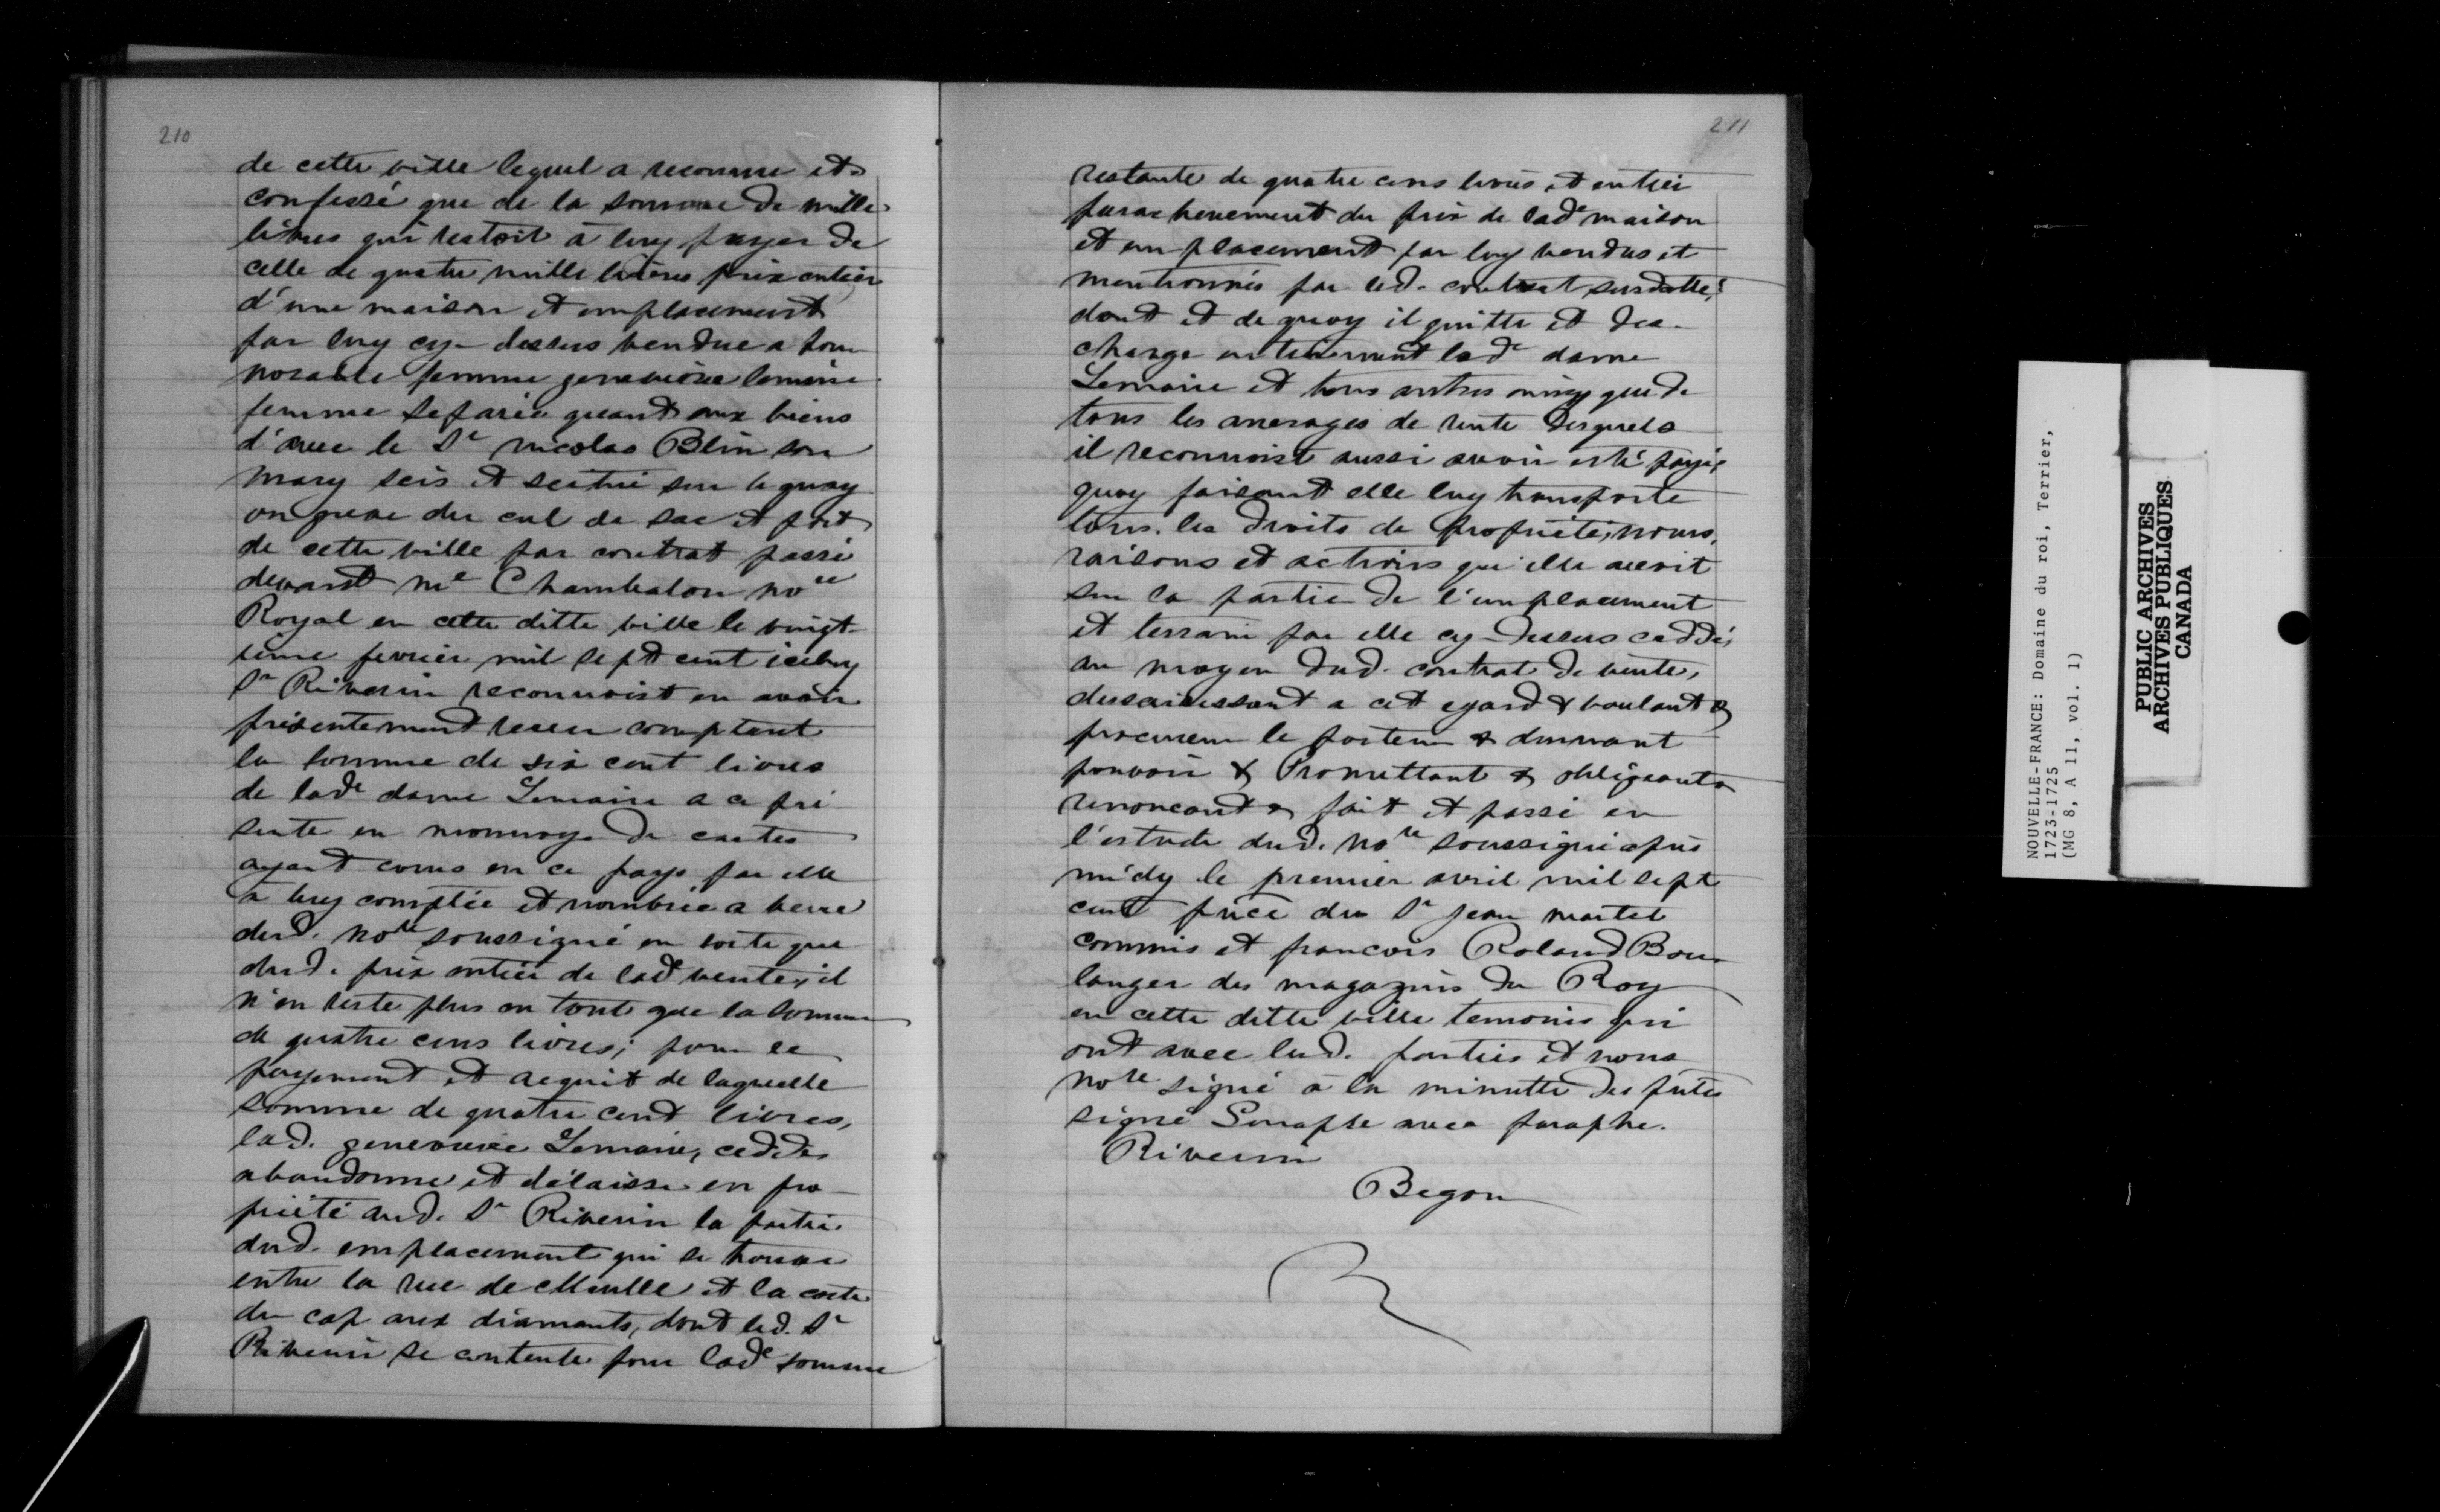 210
de cette ville lequel a reconnu et
confessé que de la somme de mille
livres qui restoit à luy payer de
celle de quatre mille livres prix entier
d'une maison et emplacement
par luy cy-dessus vendue a hon
norable femme genevieve lemaire
femme separée quant aux biens
d'avec le Sr nicolas Blin son
mary seis et scitué sur le quay
ou greve du cul de sac et port
de cette ville par contrat passé
devant me Chambalon nore
Royal en cette ditte ville le vingt
ieme fevrier mil sept cent iceluy
Sr Riverin reconnoist en avoir
présentement receu comptant
la somme de six cent livres
de lade dame Lemaire a ce pré
sente en monnoye de cartes
ayant cours en ce pays par elle
à luy comptée et nombrée a veue
dud. nore soussigné en sorte que
dud. prix entier de lade vente, il
n'en reste plus en tout que la somme
de quatre cens livres; pour le
payement et acquit de laquelle
somme de quatre cent livres,
lad. genevieve Lemaire, cedde
abandonne et délaisse en pro-
priété aud. Sr Riverin la partie
dud. emplacement qui se trouve
entre la rue de Meulle et la coste
du cap aux diamants, dont led. Sr
Riverin se contente pour lade somme
211
restante de quatre cens livres, et entier
parachevement du prix de lade maison
et emplacement par luy vendus et
mentionnés par led. contrat susdatté,
dont et de quoy il quitte et des-
charge entierement lade dame
Lemaire et tous autres ainsy que de
tous les arrerages de rente desquels
il reconnoist aussi avoir esté payé,
quoy faisant elle luy transporte
tous les droits de proprieté, noms,
raisons et actions qu'elle avoit
sur la partie de l'emplacement
et terrain par elle cy-dessus ceddé,
au moyen dud. contrat de vente,
dessaisissant a cet egard & voulant &
procureur le porteur & donnant
pouvoir & Promettant & obligeant &
renoncant & fait et passé en
l'estude dud. nore soussigné après
mídy le premier avril mil sept
cent pñce du Sr jean martel
commis et francois Roland Bou-
langer des magazins du Roy
en cette ditte ville temoins qui
ont avec lesd. parties et nous
nore signé à la minutte des pñtes
signé Genaple avec paraphe.
Riverin
Begon
NOUVELLE-FRANCE: Domaine du roi, Terrier,
1723-1725
(MG 8, A 11, vol. 1)
PUBLIC ARCHIVES
ARCHIVES PUBLIQUES
CANADA